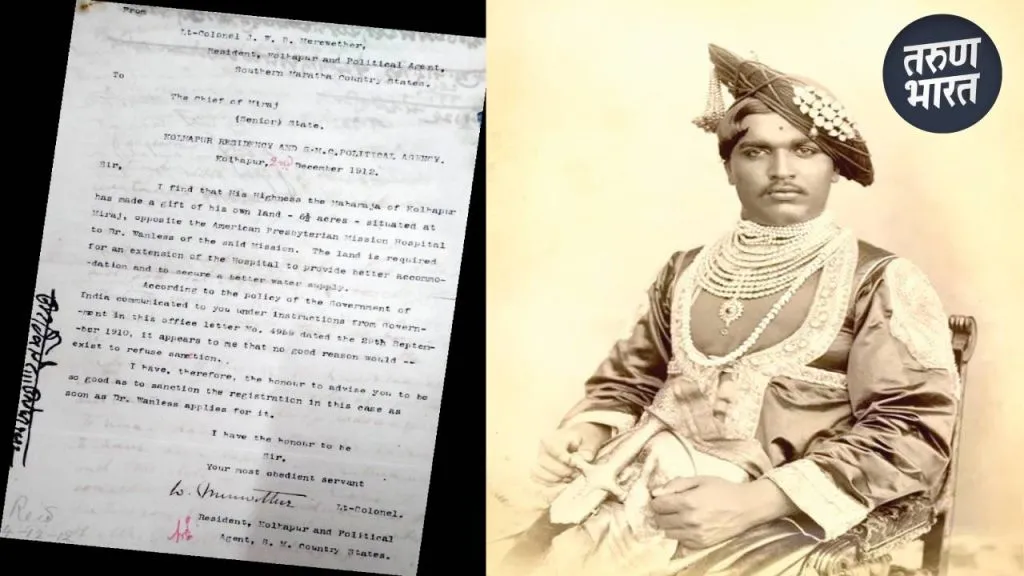 From
Lt-Colonel J. W. B. Merewether,
Resident, Kolhapur and Political Agent,
Southern Maratha Country States.
To
The Chief of Miraj
(Senior) State.
KOLHAPUR RESIDENCY AND S.M.C. POLITICAL AGENCY.
Kolhapur, 2nd December 1912.
Sir,
I find that His Highness the Maharaja of Kolhapur
has made a gift of his own land - 6½ acres - situated at
Miraj, opposite the American Presbyterian Mission Hospital
to Dr. Wanless of the said Mission. The land is required
for an extension of the Hospital to provide better accommo-
-dation and to secure a better water supply.
According to the policy of the Government of
India communicated to you under instructions from Govern-
-ment in this office letter No. 4959 dated the 29th Septem-
-ber 1910, it appears to me that no good reason would --
exist to refuse sanction.
I have, therefore, the honour to advise you to be
so good as to sanction the registration in this case as
soon as Dr. Wanless applies for it.
I have the honour to be
Sir,
Your most obedient servant
Lt-Colonel.
Resident, Kolhapur and Political
Agent, S. M. Country States.
तरुण
भारत